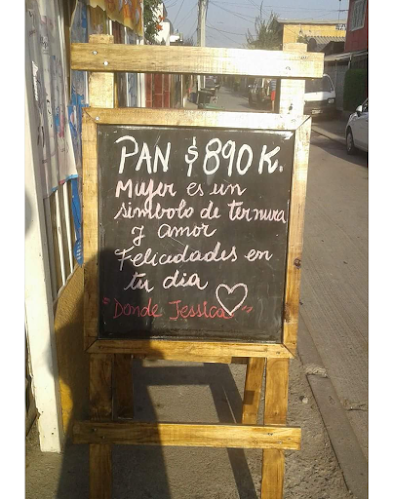 PAN $890 K.
Mujer es un
simbolo de ternura
y amor
Felicidades en
tu dia
"Donde Jessica"